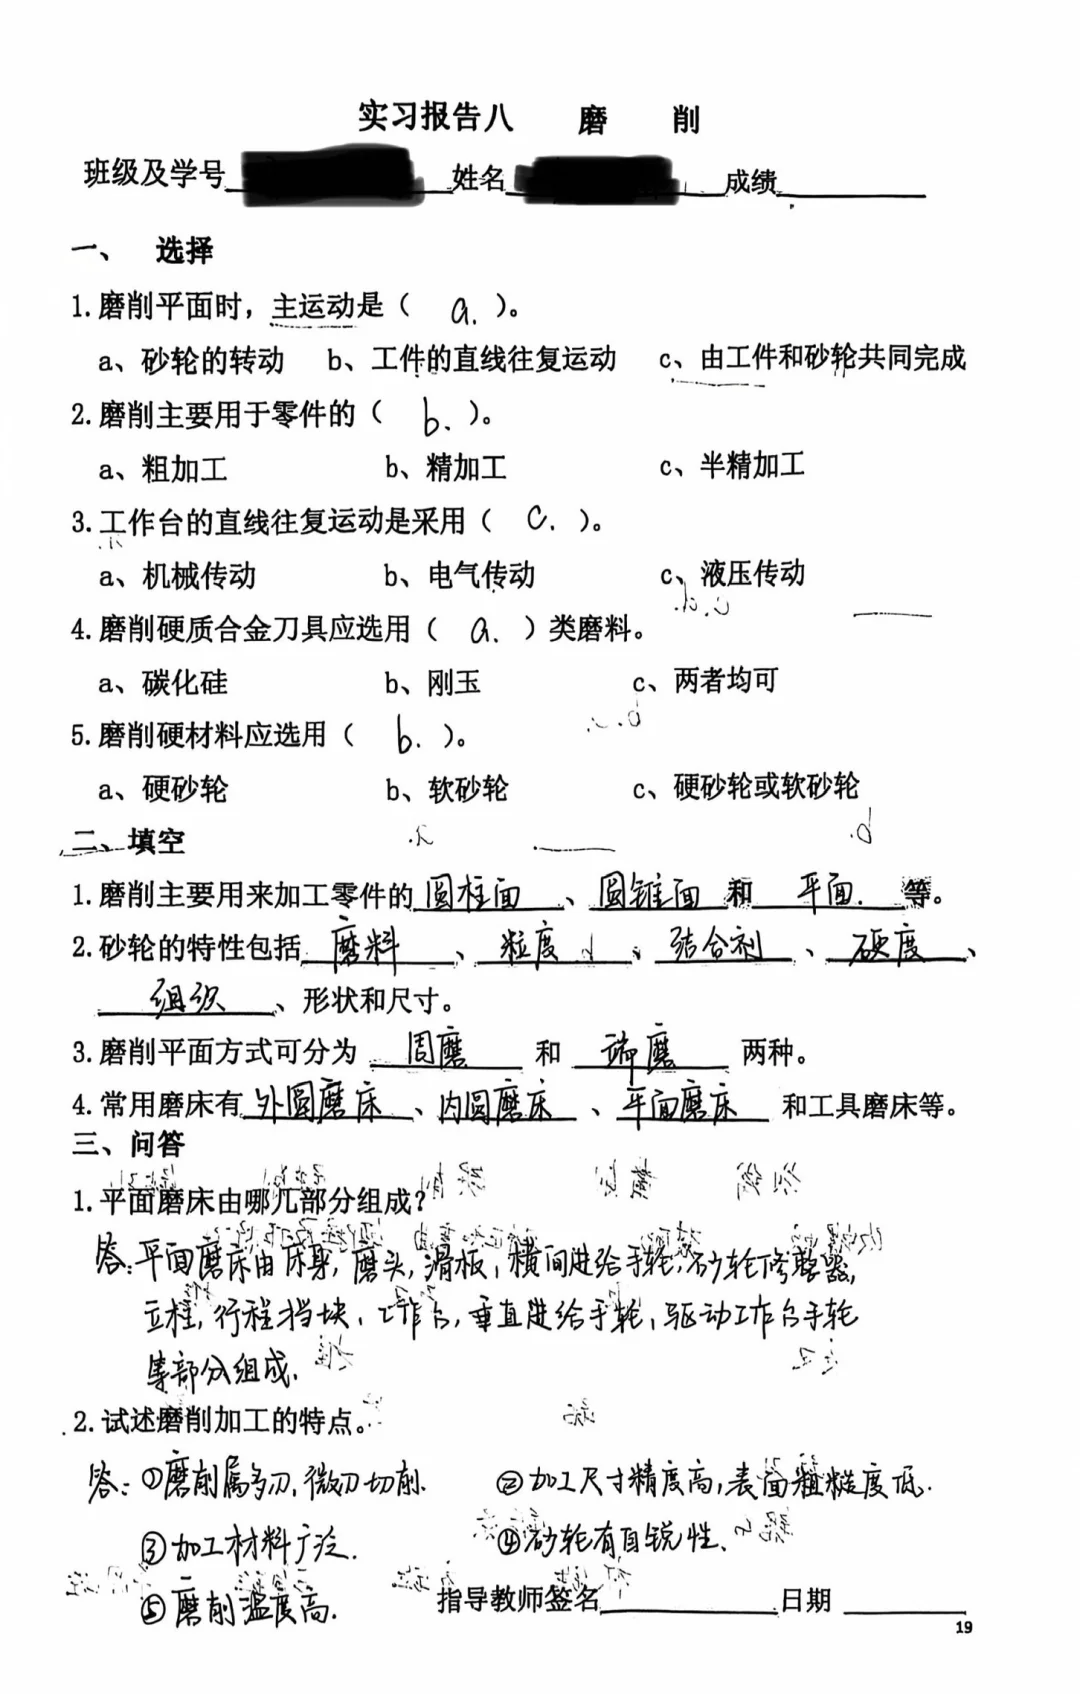 实习报告八 磨 削
班级及学号 姓名 成绩
一、 选择
1.磨削平面时，主运动是（ a. ）。
a、砂轮的转动 b、工件的直线往复运动 c、由工件和砂轮共同完成
2.磨削主要用于零件的（ b. ）。
a、粗加工 b、精加工 c、半精加工
3.工作台的直线往复运动是采用（ C. ）。
a、机械传动 b、电气传动 c、液压传动
4.磨削硬质合金刀具应选用（ a. ）类磨料。
a、碳化硅 b、刚玉 c、两者均可
5.磨削硬材料应选用（ b. ）。
a、硬砂轮 b、软砂轮 c、硬砂轮或软砂轮
二、填空
1.磨削主要用来加工零件的 圆柱面 、 圆锥面 和 平面. 等。
2.砂轮的特性包括 磨料 、 粒度 、 结合剂 、 硬度 、
组织 、形状和尺寸。
3.磨削平面方式可分为 周磨 和 端磨 两种。
4.常用磨床有 外圆磨床 、内圆磨床 、平面磨床 和工具磨床等。
三、问答
1.平面磨床由哪几部分组成？
答：平面磨床由床身，磨头，滑板，横间进给手轮，砂轮修整器，
立柱，行程挡块，工作台，垂直进给手轮，驱动工作台手轮
等部分组成.
2.试述磨削加工的特点。
答：①磨削属多刃、微刃切削. ②加工尺寸精度高，表面粗糙度低.
③加工材料广泛. ④砂轮有自锐性.
⑤磨削温度高. 指导教师签名 日期
19